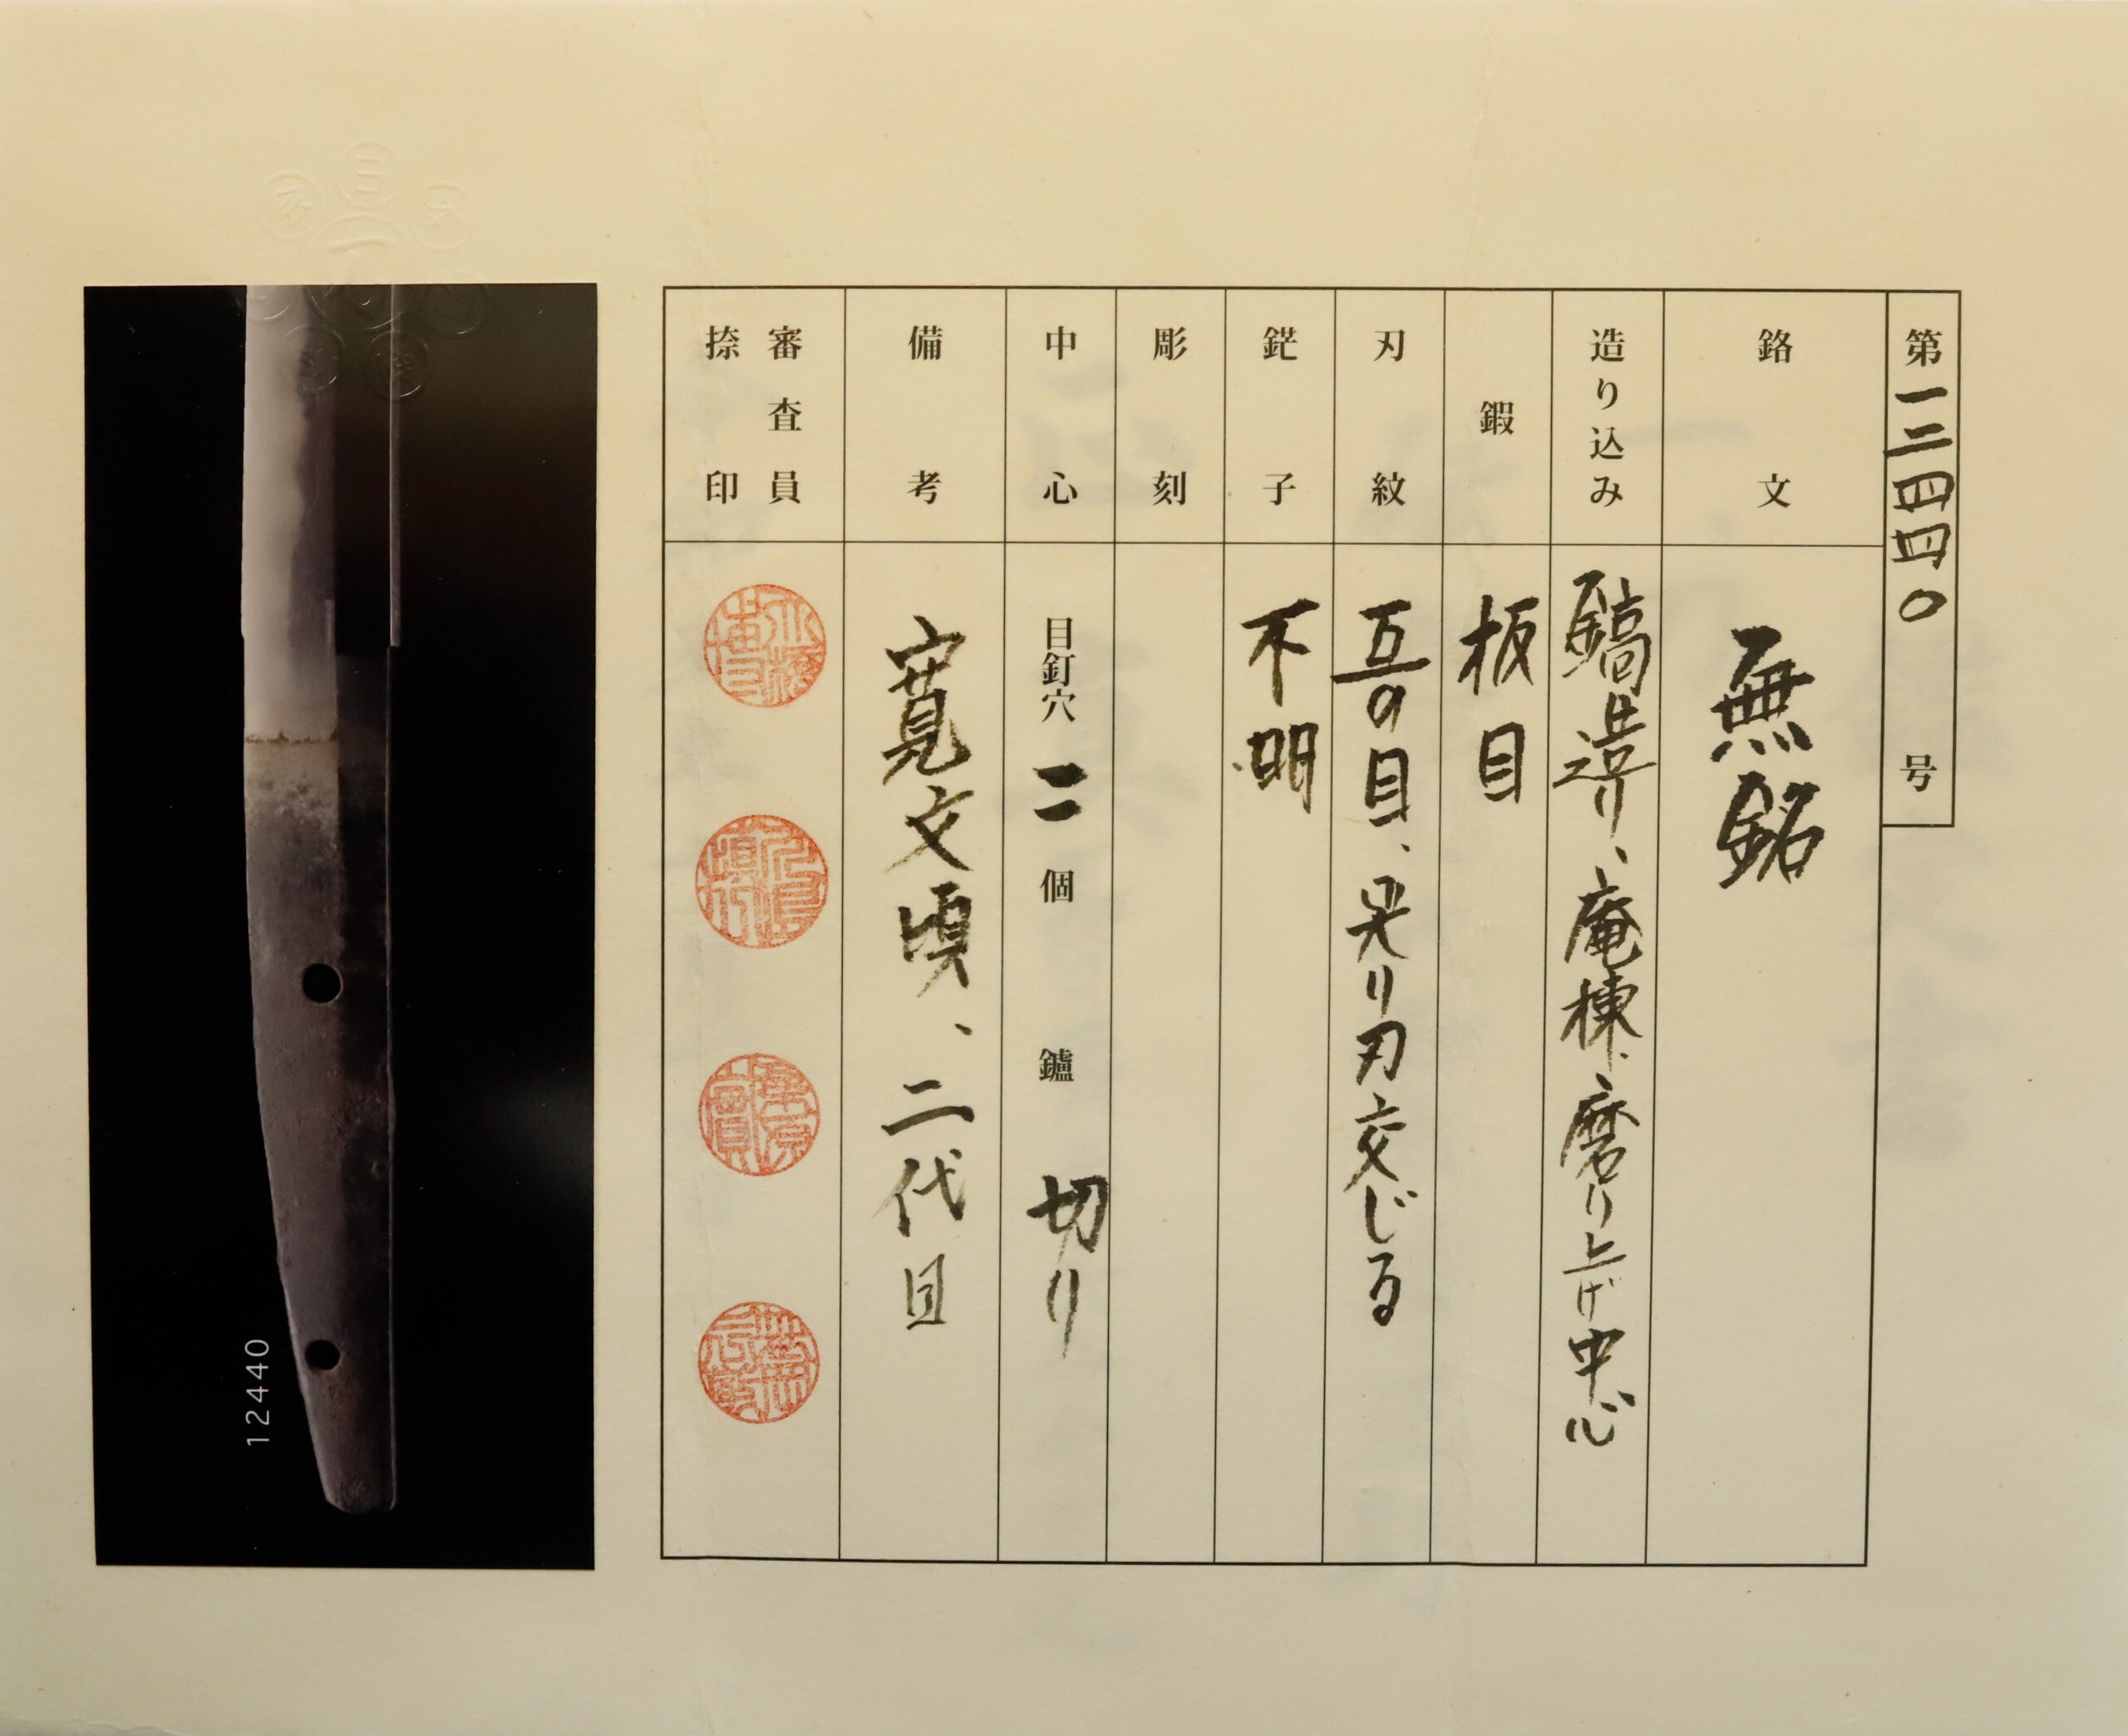 第一二四四〇号
銘文 無銘
造り込み 鎬造り、庵棟、磨り上げ中心
鍜 板目
刃紋 互の目、尖り刃交じる
鋩子 不明
彫刻
中心 目釘穴 二 個 鑢 切り
備考 寛文頃、二代目
審査員
捺印
12440